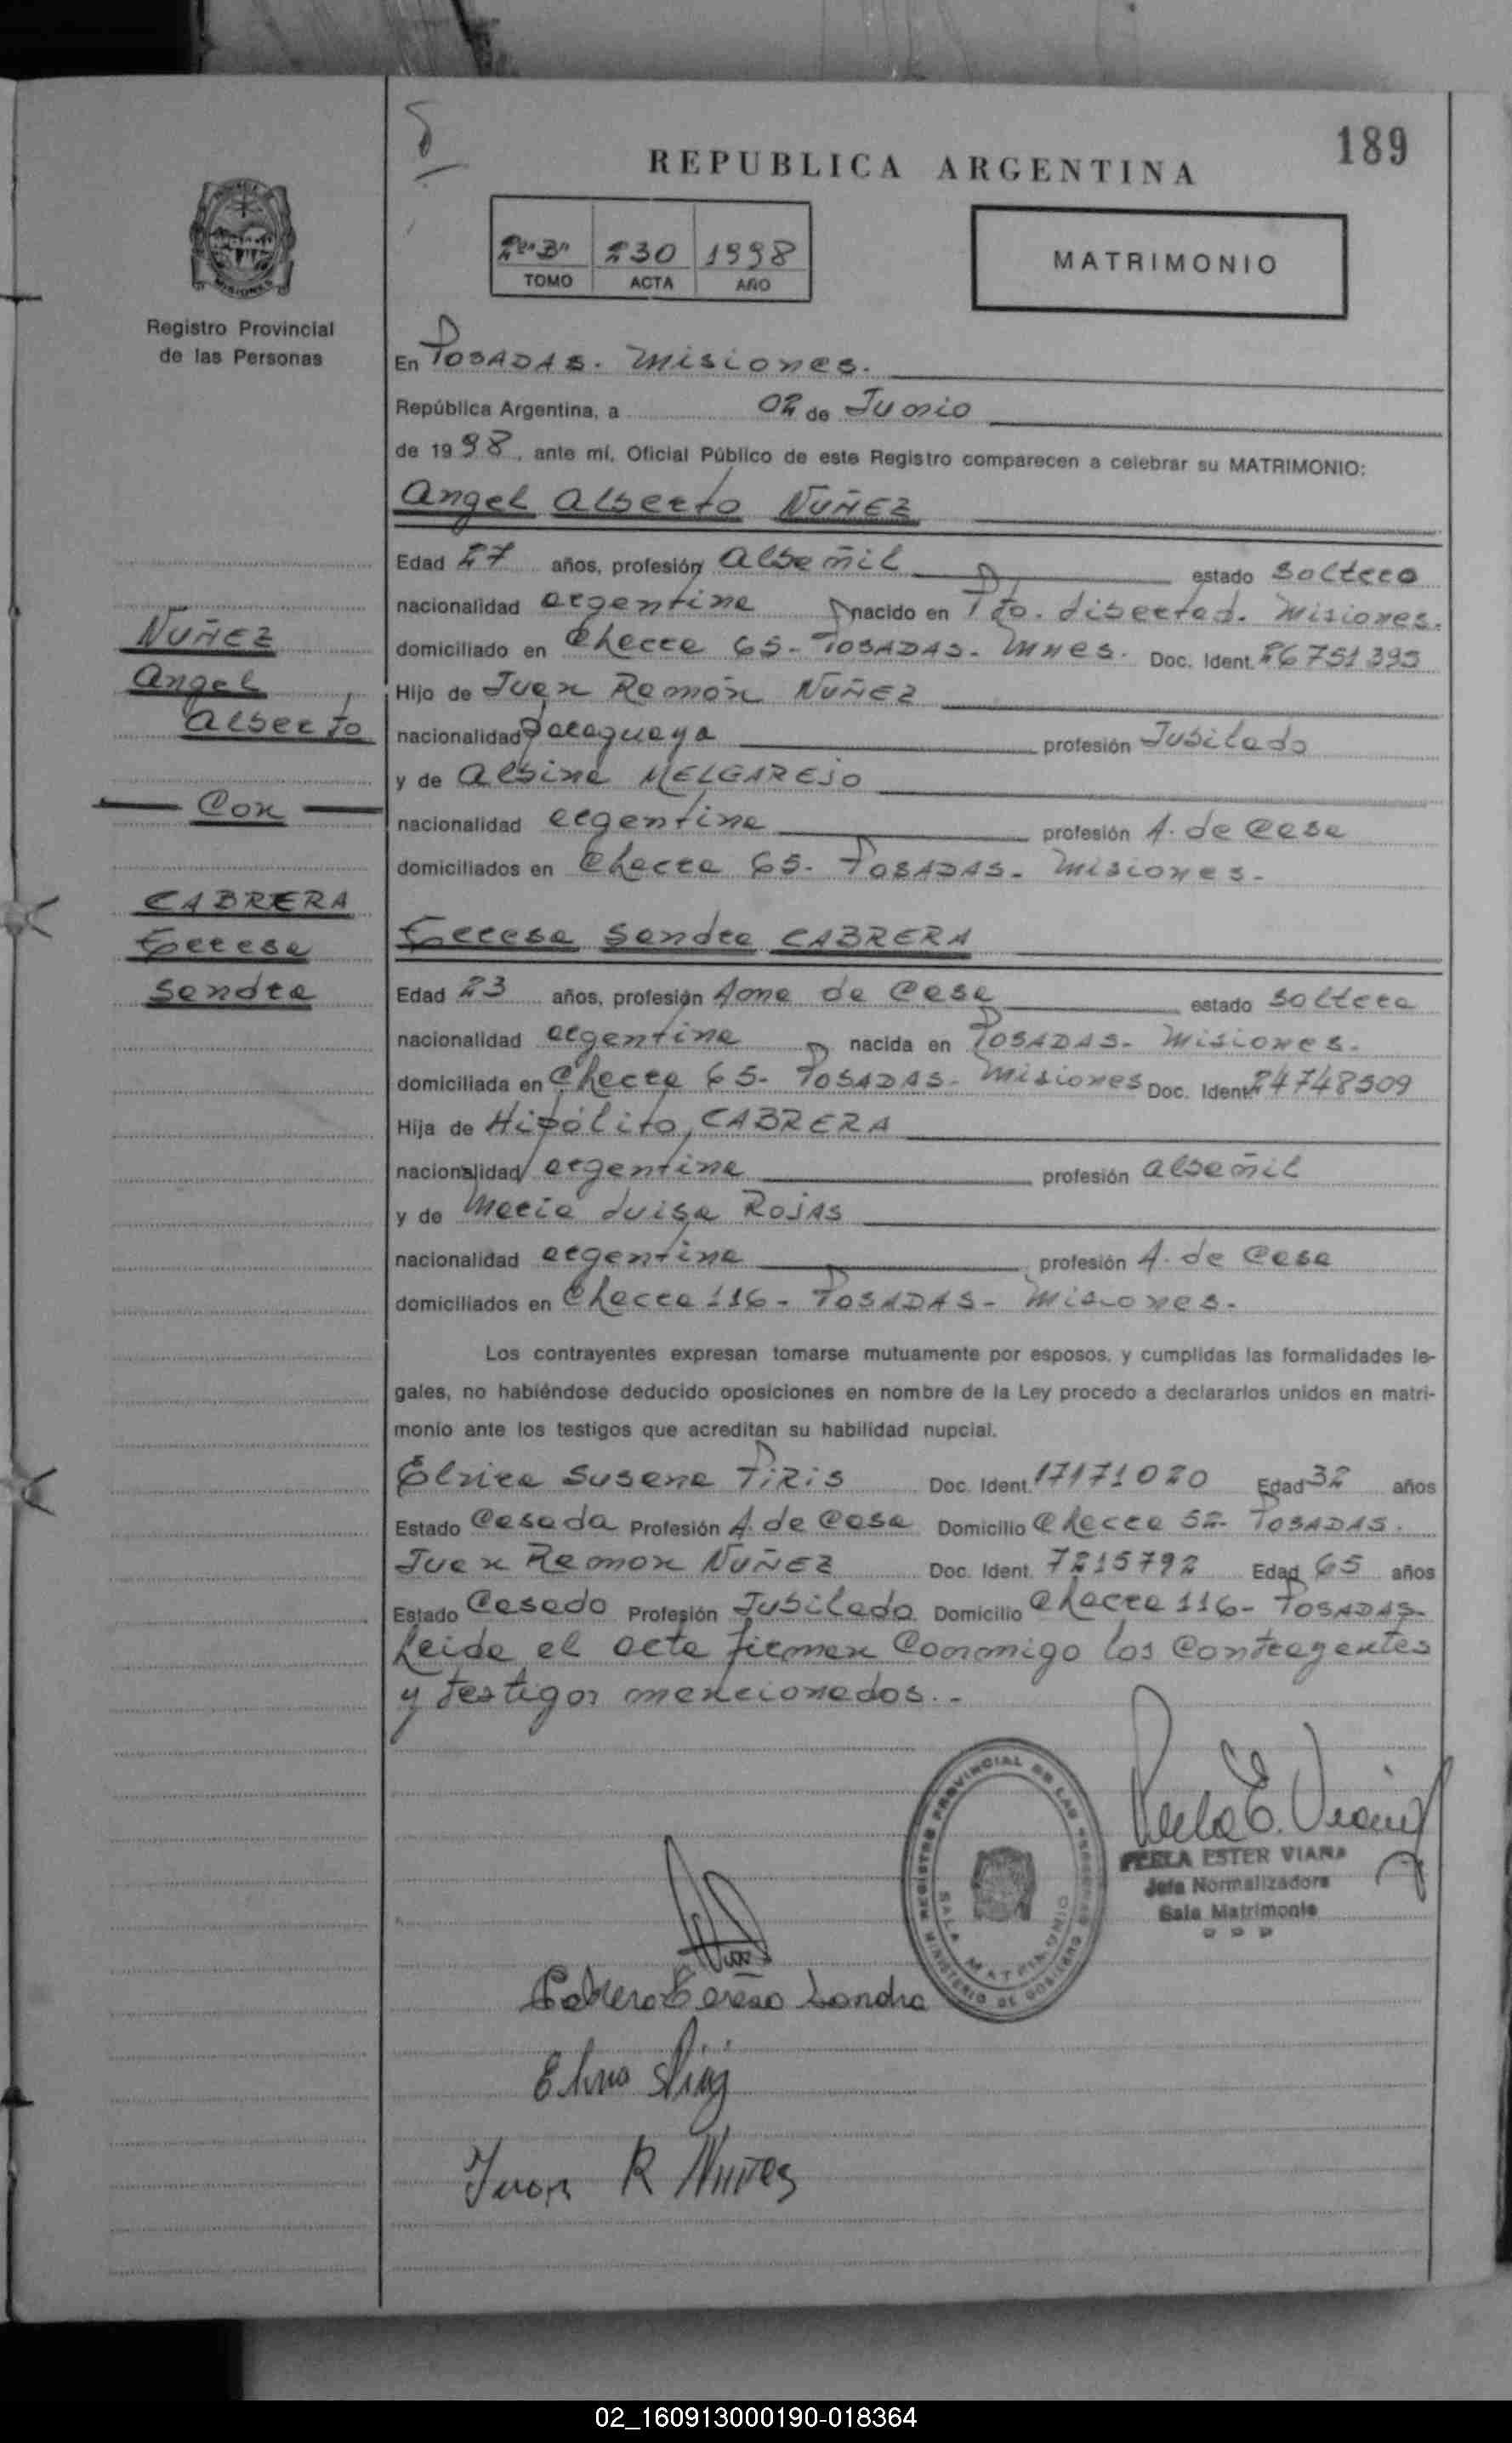 189
REPUBLICA ARGENTINA
2º"B" 230 1998
TOMO ACTA AÑO
MATRIMONIO
MISIONES
Registro Provincial
de las Personas
En POSADAS. Misiones.
República Argentina, a 02 de Junio
de 1998, ante mí, Oficial Público de este Registro comparecen a celebrar su MATRIMONIO:
Angel Alberto NUÑEZ
Edad 27 años, profesión Albañil estado Soltero
nacionalidad argentina nacido en Pto. Libertad. Misiones.
domiciliado en Chacra 65- POSADAS- Mnes. Doc. Ident. 26751395
Hijo de Juan Ramón NUÑEZ
nacionalidad Paraguaya profesión Jubilado
y de Albina MELGAREJO
nacionalidad argentina profesión A. de Casa
domiciliados en Chacra 65- POSADAS- Misiones-
NUÑEZ
Angel
Alberto
Con
CABRERA
Teresa
Sandra
Teresa Sandra CABRERA
Edad 23 años, profesión Ama de Casa estado Soltera
nacionalidad argentina nacida en POSADAS- Misiones-
domiciliada en Chacra 65- POSADAS- Misiones Doc. Ident. 24748509
Hija de Hipólito CABRERA
nacionalidad argentina profesión Albañil
y de María Luisa ROJAS
nacionalidad argentina profesión A. de Casa
domiciliados en Chacra 116- POSADAS- Misiones-
Los contrayentes expresan tomarse mutuamente por esposos, y cumplidas las formalidades le-
gales, no habiéndose deducido oposiciones en nombre de la Ley procedo a declararlos unidos en matri-
monio ante los testigos que acreditan su habilidad nupcial.
Elvira Susana PIRIS Doc. Ident. 17171020 Edad 32 años
Estado Casada Profesión A. de Casa Domicilio Chacra 52- POSADAS.
Juan Ramon NUÑEZ Doc. Ident. 7215792 Edad 65 años
Estado Casado Profesión Jubilado Domicilio Chacra 116- POSADAS-
Leida el acta firman Conmigo los Contrayentes
y testigos mencionados.-
REGISTRO PROVINCIAL DE LAS PERSONAS
MINISTERIO DE GOBIERNO
SALA MATRIMONIO
Perla E. Viana
PERLA ESTER VIANA
Jefa Normalizadora
Sala Matrimonio
Cabrera Teresa Sandra
Elvira Piris
Juan R Nuñez
02_160913000190-018364